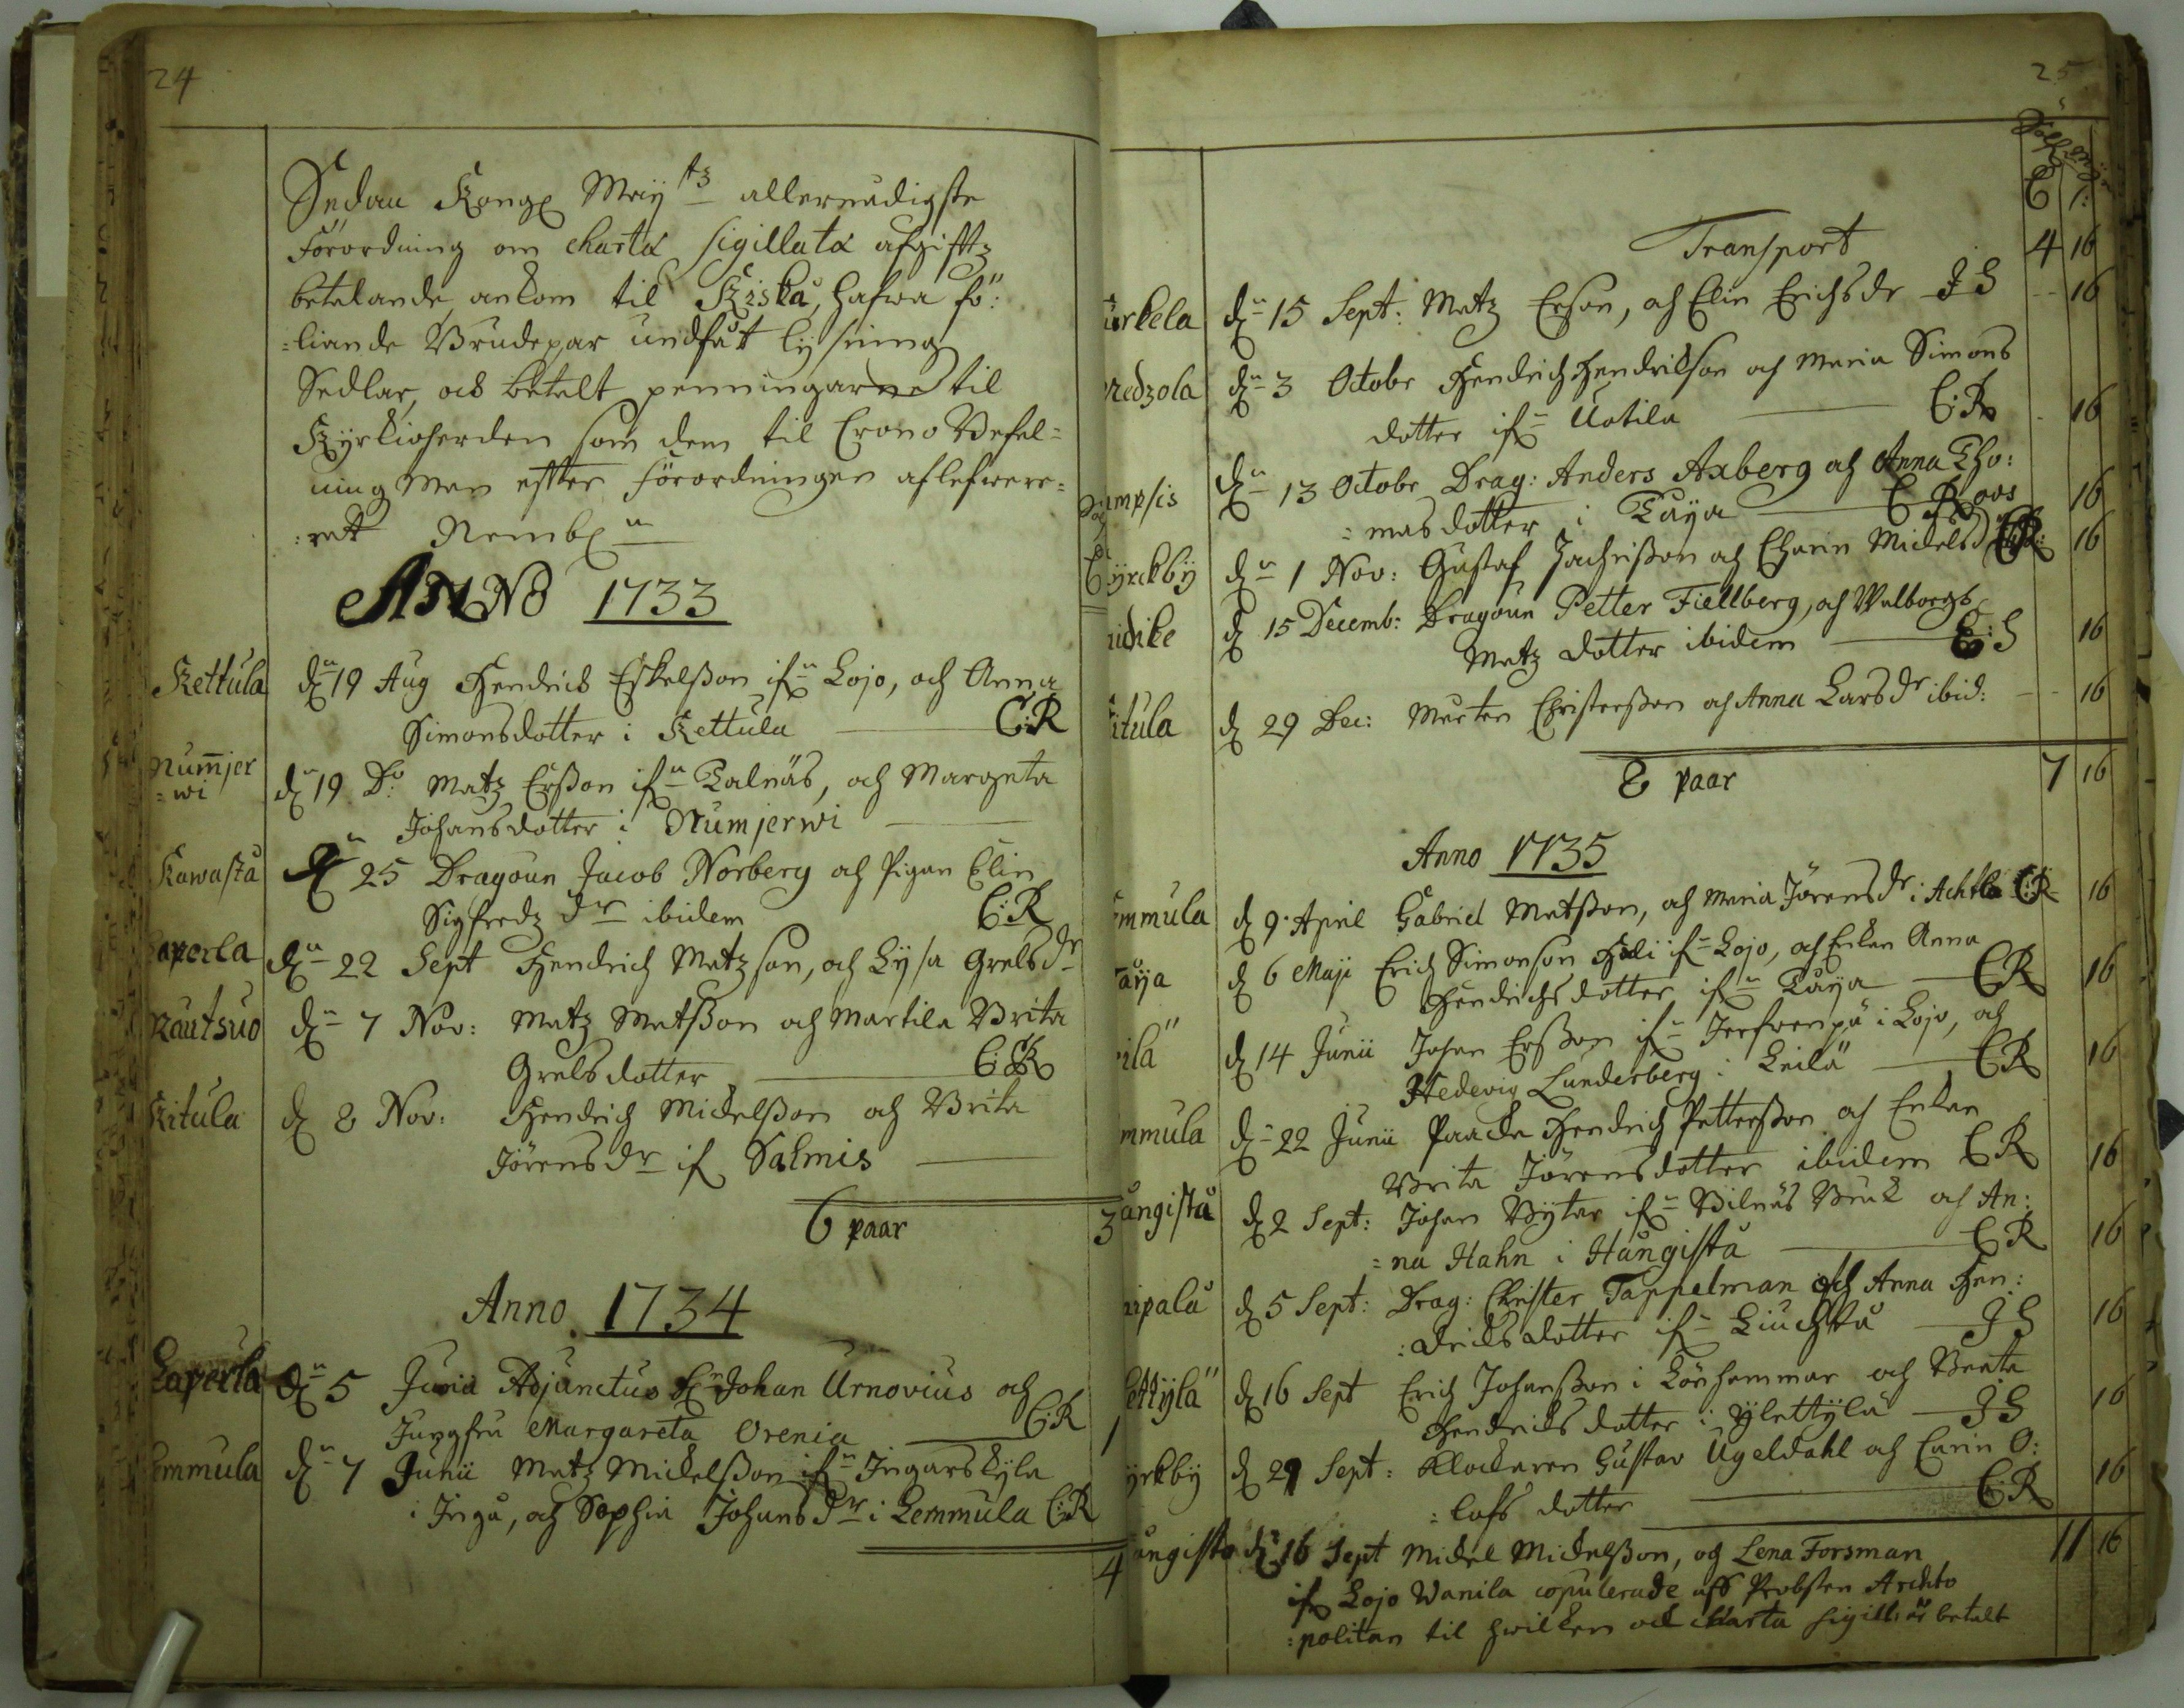 24
Sedan Kongl Maÿtz allernådigste
Förordning om charta sigillata afgifftz
betalande, ankom til Kiskå, hafwa fö:
:liande Brudepar undfåt lysning
Sedlar, och betalt penningarne til
Kyrkioherden som dem til Crono Befal=
ning Man effter Förordningen aflefwere=
:rat Nembl
ANNO 1733
Kettula dn 19 Aug Hendrich Eskelsson ifn Lojo, och Anna
Simonsdotter i Kettula C:R
Numjer
=wi dn 19 Do: Matz Ersson ifn Talnäs, och Margeta
Johansdotter i Numjerwi
Kawastå dn 25 Dragoun Jacob Norberg och Pigan Elin
Sigfredz dr ibidem C:R
Laperla dn 22 Sept Hendrich Matzson, och Lysa Grelsdr
Rautsuo dn 7 Nov: Matz Matsson och Martila Brita
Grelsdotter C:R
Kitula d 8 Nov: Hendrich Michelsson och Brita
Jörensdr if Salmis
6 paar 3
Anno 1734
Laperla dn 5 Junii Adjunctus Hn Johan Urnovius och
Jungfru Margareta Orenia C:R 1
Lemmula dn 7 Junii Matz Michelsson ifn Ingarskyla
i Ingå, och Sophia Johansdr i Lemmula C:R
4
25
C 1:
Transport 4 16
urkela dn 15 Sept: Matz Erson, och Elin Erichsdr J S 16
redzola dn 3 Octobr Hendrich Hendrikson och Maria Simons
dotter ifn Uotila C:R 16
ampsis dn 13 Octobr Drag: Anders Axberg och Anna Tho:
:masdotter i Taÿa C R 16
Cyrckbÿ dn 1 Nov: Gustaf Zachrisson och Charin Michelsd C:R: 16
d 15 Decemb: Dragoun Petter Fiellberg, och Walborgs
Matz dotter ibidem E:S 16
itula d 29 Dec: Marten Christersson och Anna Larsdr ibid: 16
8 paar 7 16
Anno 1735
mmula d 9 April Gabriel Matsson, och Maria Jörensdr i Achtla C:R 16
aÿa d 6 Maji Erich Simonson ifn Lojo, och Enkan Anna
Hendrichsdotter ifn Taÿa C R 16
ilä d 14 Junii Johan Ersson ifn Jerfwenpä i Lojo, och
Hedevig Lunderberg i Leilä C R 16
mmula dn 22 Junii Paacka Hendrich Pettersson och Enkan
Brita Jörensdotter ibidem C R 16
ångistå d 2 Sept: Johan Byter ifn Bilnäs Bruk och An:
:na Hahn i Hångistå C R 16
ipalå d 5 Sept: Drag: Christer Tappelman och Anna Hen:
:drichsdotter ifn Liuchtu J S 16
lettÿlä d 16 Sept Erich Johansson i Lönhammar och Beata
Hendrichsdotter i Ÿlettÿlä J S 16
yrkbÿ d 29 Sept: Klockaren Gustav Ugeldahl och Carin O:
:lafs dotter C:R 16
ångistå d 16 Sept Michel Michelsson, och Lena Forsman 11 16
if Lojo Wanila copulerade aff Probsten Archto
:politan til hwilken och Charta sigill: är betalt